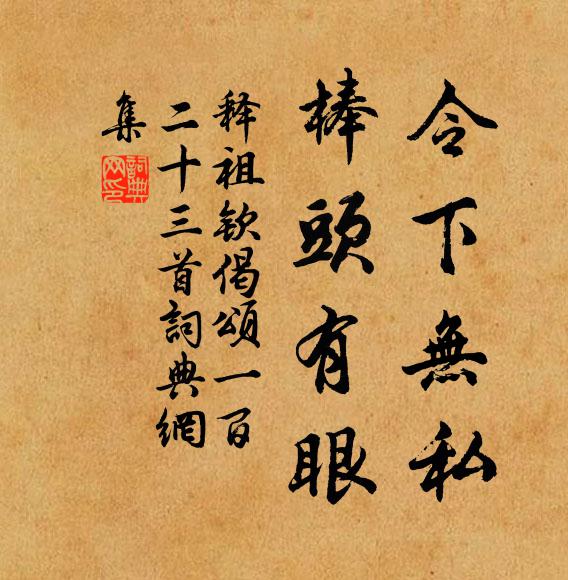 令下無私
棒頭有眼
释祖欽偈頌一百
二十三首詞典網
集
詞典網印